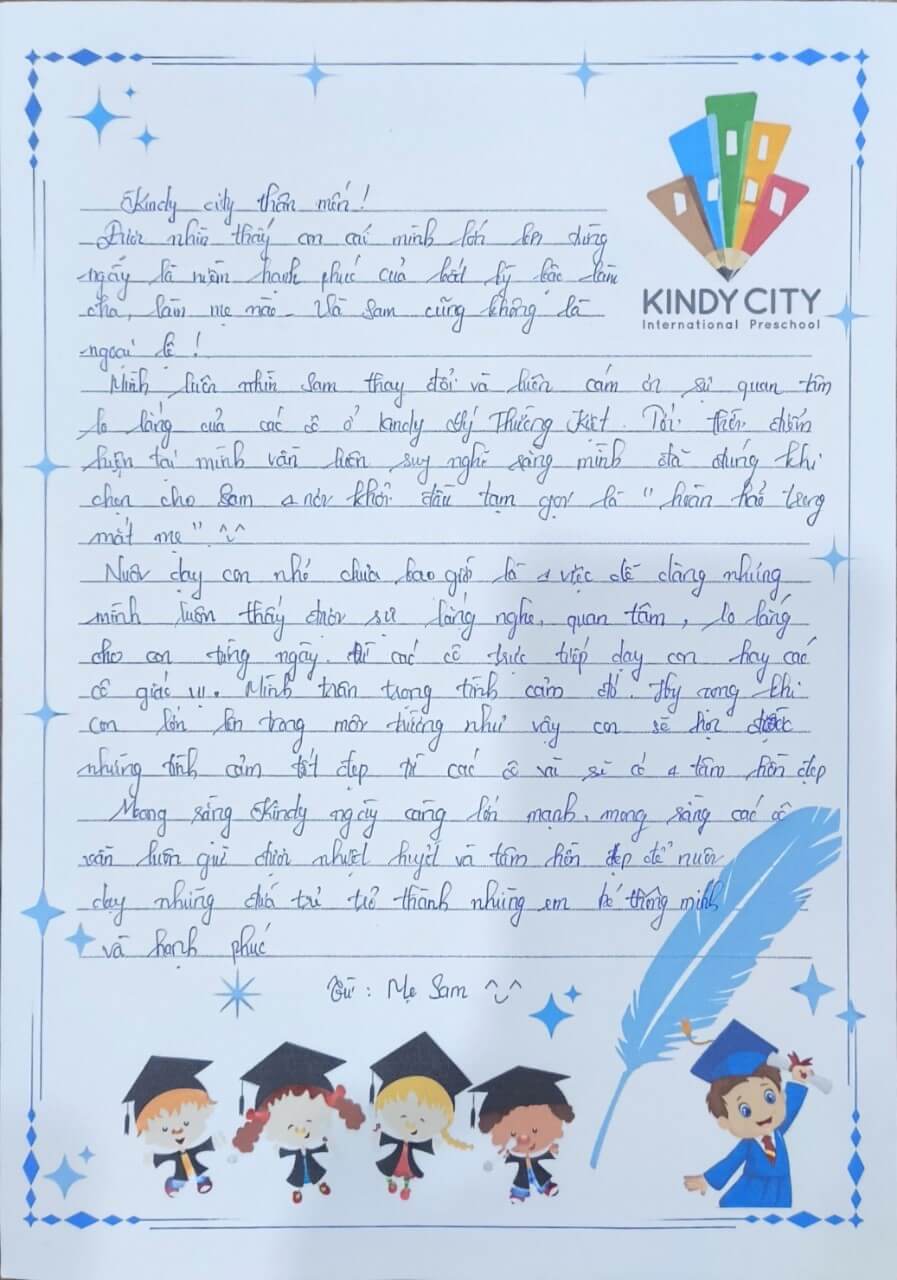 KINDY CITY
International Preschool
Kindy city thân mến!
Được nhìn thấy con cái mình lớn lên từng
ngày là niềm hạnh phúc của bất kỳ bậc làm
cha, làm mẹ nào. Và Sam cũng không là
ngoại lệ!
Mình luôn nhìn Sam thay đổi và luôn cảm ơn sự quan tâm
lo lắng của các cô ở Kindy Lý Thường Kiệt. Tới thời điểm
hiện tại mình vẫn luôn suy nghĩ rằng mình đã đúng khi
chọn cho Sam 1 nơi khởi đầu tạm gọi là "hoàn hảo trong
mắt mẹ". ^^
Nuôi dạy con nhỏ chưa bao giờ là 1 việc dễ dàng nhưng
mình luôn thấy được sự lắng nghe, quan tâm, lo lắng
cho con từng ngày. Từ các cô trực tiếp dạy con hay các
cô giác Mình trân trọng tình cảm đó. Hy vọng khi
con lớn lên trong môi trường như vậy con sẽ học được
những tình cảm tốt đẹp từ các cô và sẽ có 1 tâm hồn đẹp
Mong rằng Kindy ngày càng lớn mạnh, mong rằng các cô
vẫn luôn giữ được nhiệt huyết và tâm hồn đẹp để nuôi
dạy những đứa trẻ trở thành những em bé thông minh
và hạnh phúc
Từ: Mẹ Sam ^^